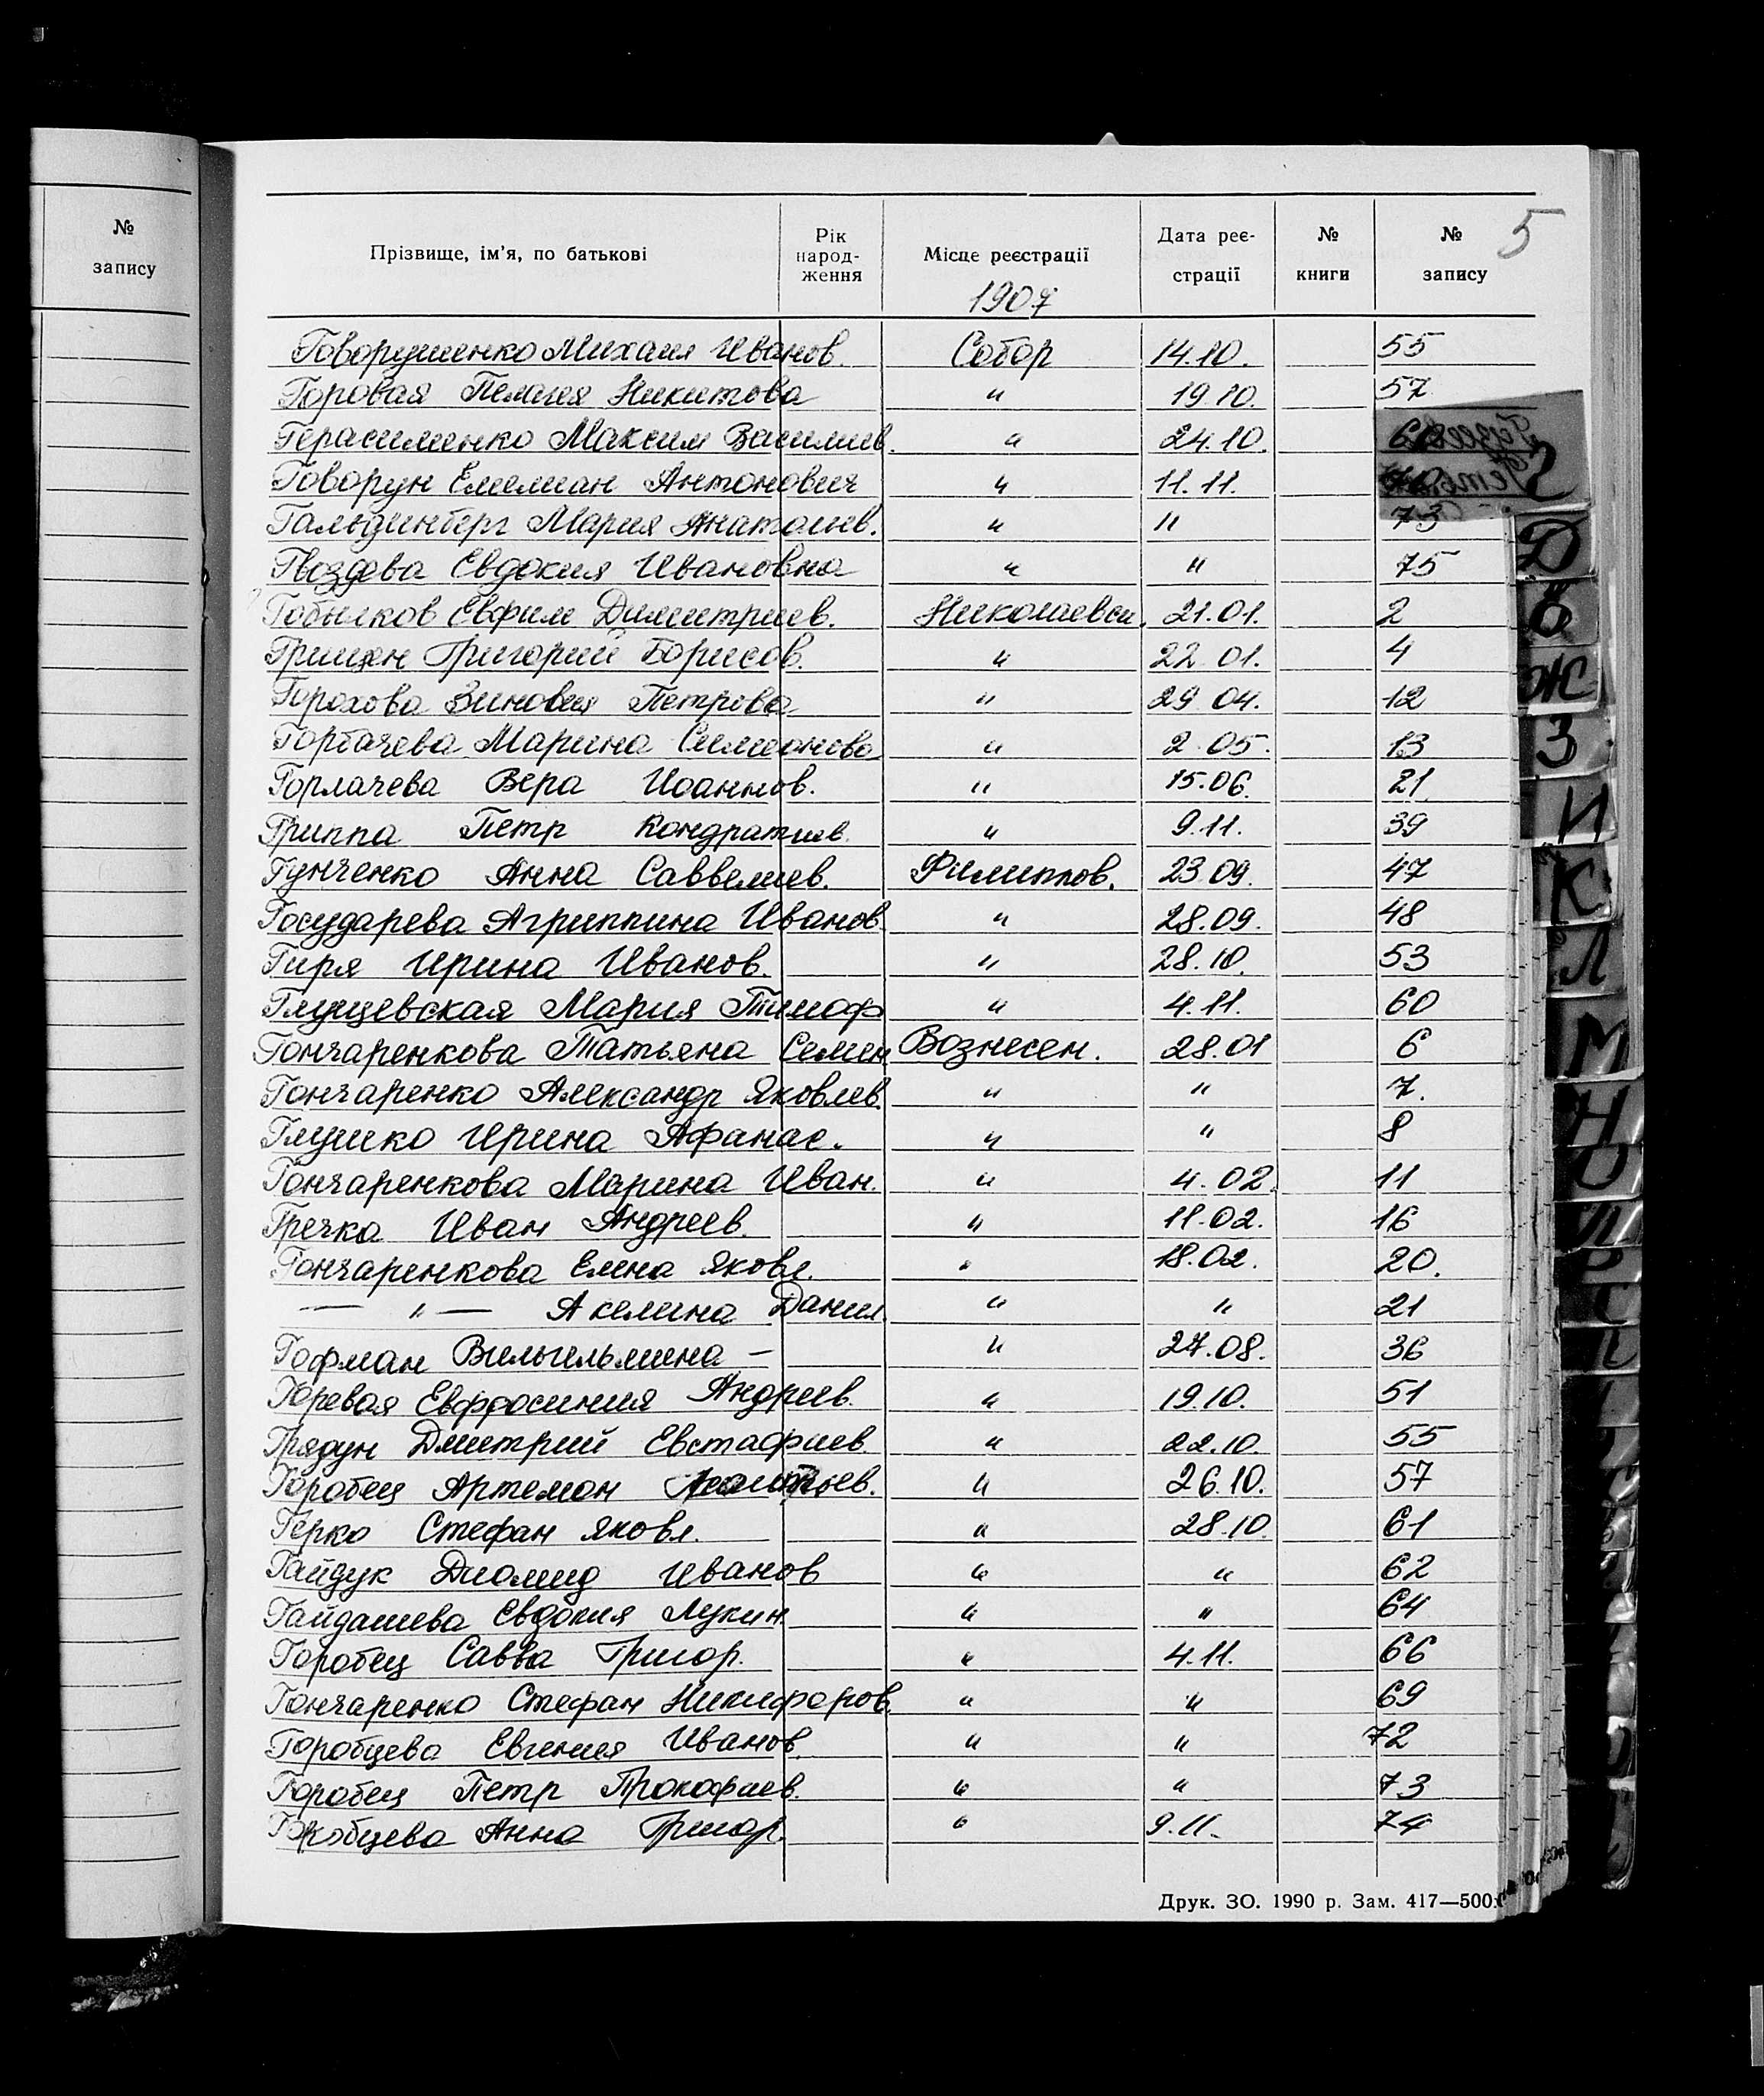 № запису
Прізвище, ім'я, по батькові | Рік народ-ження | Місце реєстрації 1907 | Дата реє-страції | № книги | № запису | 5
Говорушенко Михаил Иванов. | Собор | 14.10. | 55
Горовая Пелагея Никитова | " | 19.10. | 57
Герасименко Максим Василиев. | " | 24.10.
Говорун Емелиан Антонович | " | 11.11.
Гальдинберг Мария Анатолиев. | " | " | 73
Гвоздева Евдокия Ивановна | " | " | 75
Гобылков Евфим Димитриев. | Николаевск. | 21.01. | 2
Григорий Борисов. | " | 22.01. | 4
Горохова Зиновия Петрова | " | 29.04. | 12
Горбачева Марина Симеонова | " | 2.05. | 13
Горлачева Вера Иоаннов. | " | 15.06. | 21
Гриппа Петр Кондратиев. | " | 9.11. | 39
Гунченко Анна Саввелиев. | Филиппов. | 23.09. | 47
Государева Агриппина Иванов. | " | 28.09. | 48
Гиря Ирина Иванов. | " | 28.10. | 53
Глущевская Мария Тимоф | " | 4.11. | 60
Гончаренкова Татьяна Семен. | Вознесен. | 28.01 | 6
Гончаренко Александр Яковлев. | " | " | 7.
Глушко Ирина Афанас. | " | " | 8
Гончаренкова Марина Иван. | " | 4.02. | 11
Гречка Иван Андреев. | " | 11.02. | 16
Гончаренкова Елена Яковл. | " | 18.02. | 20.
— " — Акелина Данил. | " | " | 21
Гофман Вильгельмина – | " | 27.08. | 36
Горевая Евфросиния Андреев. | " | 19.10. | 51
Грядун Дмитрий Евстафиев. | " | 22.10. | 55
Горобец Артемон | " | 26.10. | 57
Герко Стефан Яковл. | " | 28.10. | 61
Гайдук Диомид Иванов | " | " | 62
Гайдашева Евдокия Лукин. | " | " | 64
Горобец Савва Григор. | " | 4.11. | 66
Гончаренко Стефан Никифоров. | " | " | 69
Горобцева Евгения Иванов. | " | " | 72
Горобец Петр Прокофиев. | " | " | 73
Горобцева Анна Григор. | " | 9.11. | 74
Друк. ЗО. 1990 р. Зам. 417—500
Г
Д
Ж
З
И
К
Л
М
Н
О
П
Р
С